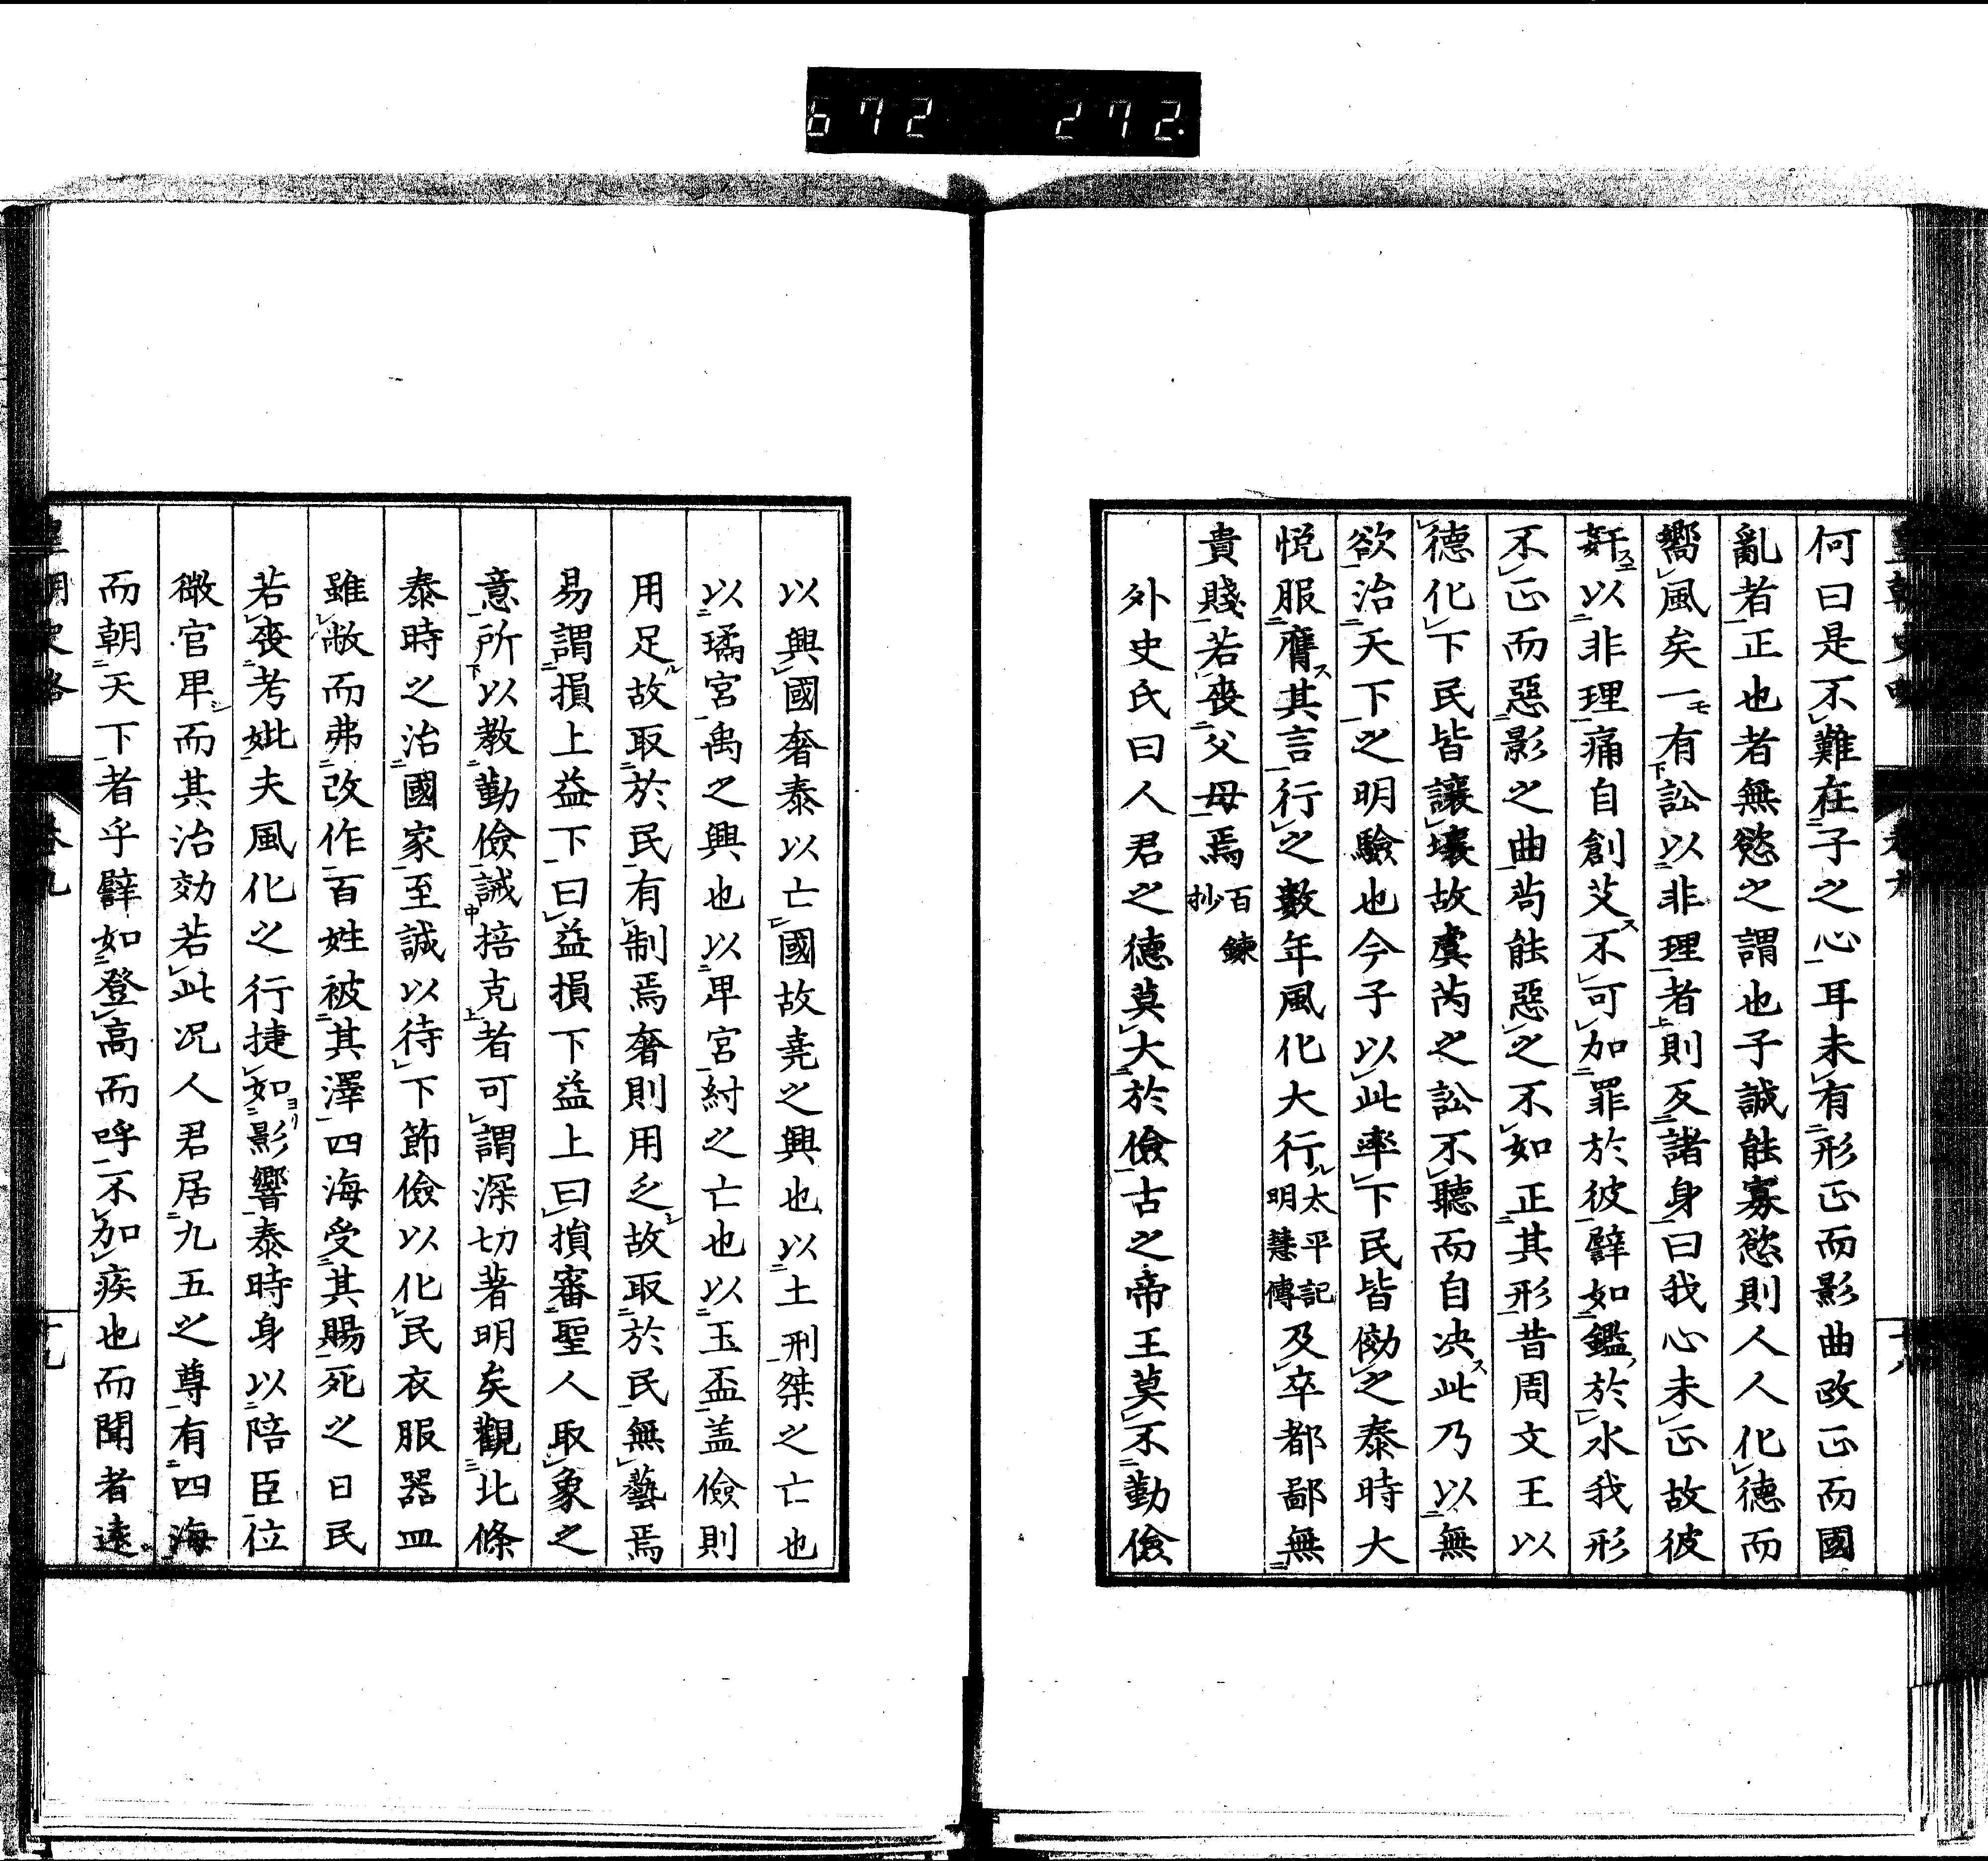 672 272.
何曰是不難在子之心耳未有形正而影曲政正而國
亂者正也者無慾之謂也子誠能寡慾則人人化德而
嚮風矣一有訟以非理者則反諸身曰我心未正故彼
姧以非理痛自創艾不可加罪於彼譬如鑑於水我形
不正而惡影之曲茍能惡之不如正其形昔周文王以
德化下民皆讓壤故虞芮之訟不聽而自决此乃以無
欲治天下之明驗也今子以此率下民皆傚之泰時大
悅服膺其言行之數年風化大行太平記明慧傳及卒都鄙無
貴賤若喪父母焉百鍊抄
外史氏曰人君之德莫大於儉古之帝王莫不勤儉
以興國奢泰以亡國故堯之興也以土刑桀之亡也
以璚宮禹之興也以卑宮紂之亡也以玉盃盖儉則
用足故取於民有制焉奢則用乏故取於民無藝焉
易謂損上益下曰益損下益上曰損審聖人取象之
意所以教勤儉誡掊克者可謂深切著明矣觀北條
泰時之治國家至誠以待下節儉以化民衣服器皿
雖敝而弗改作百姓被其澤四海受其賜死之日民
若喪考妣夫風化之行捷如影響泰時身以陪臣位
微官卑而其治効若此况人君居九五之尊有四海
而朝天下者乎譬如登高而呼不加疾也而聞者遠